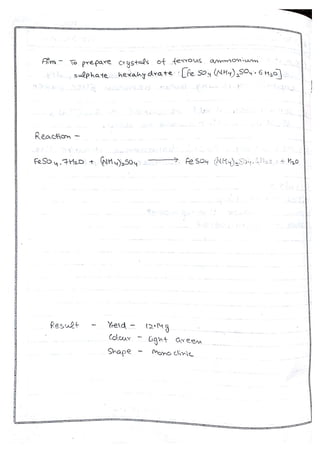 Aim - To prepare crystals of ferrous ammonium
sulphate hexahydrate. [Fe SO4 (NH4)2 SO4 . 6 H2O]
Reaction -
FeSO4.7H2O + (NH4)2SO4 ⟶ Fe SO4 (NH4)2SO4.6H2O + H2O
Result - Yield - 12.14g
Colour - Light Green
Shape - Monoclinic